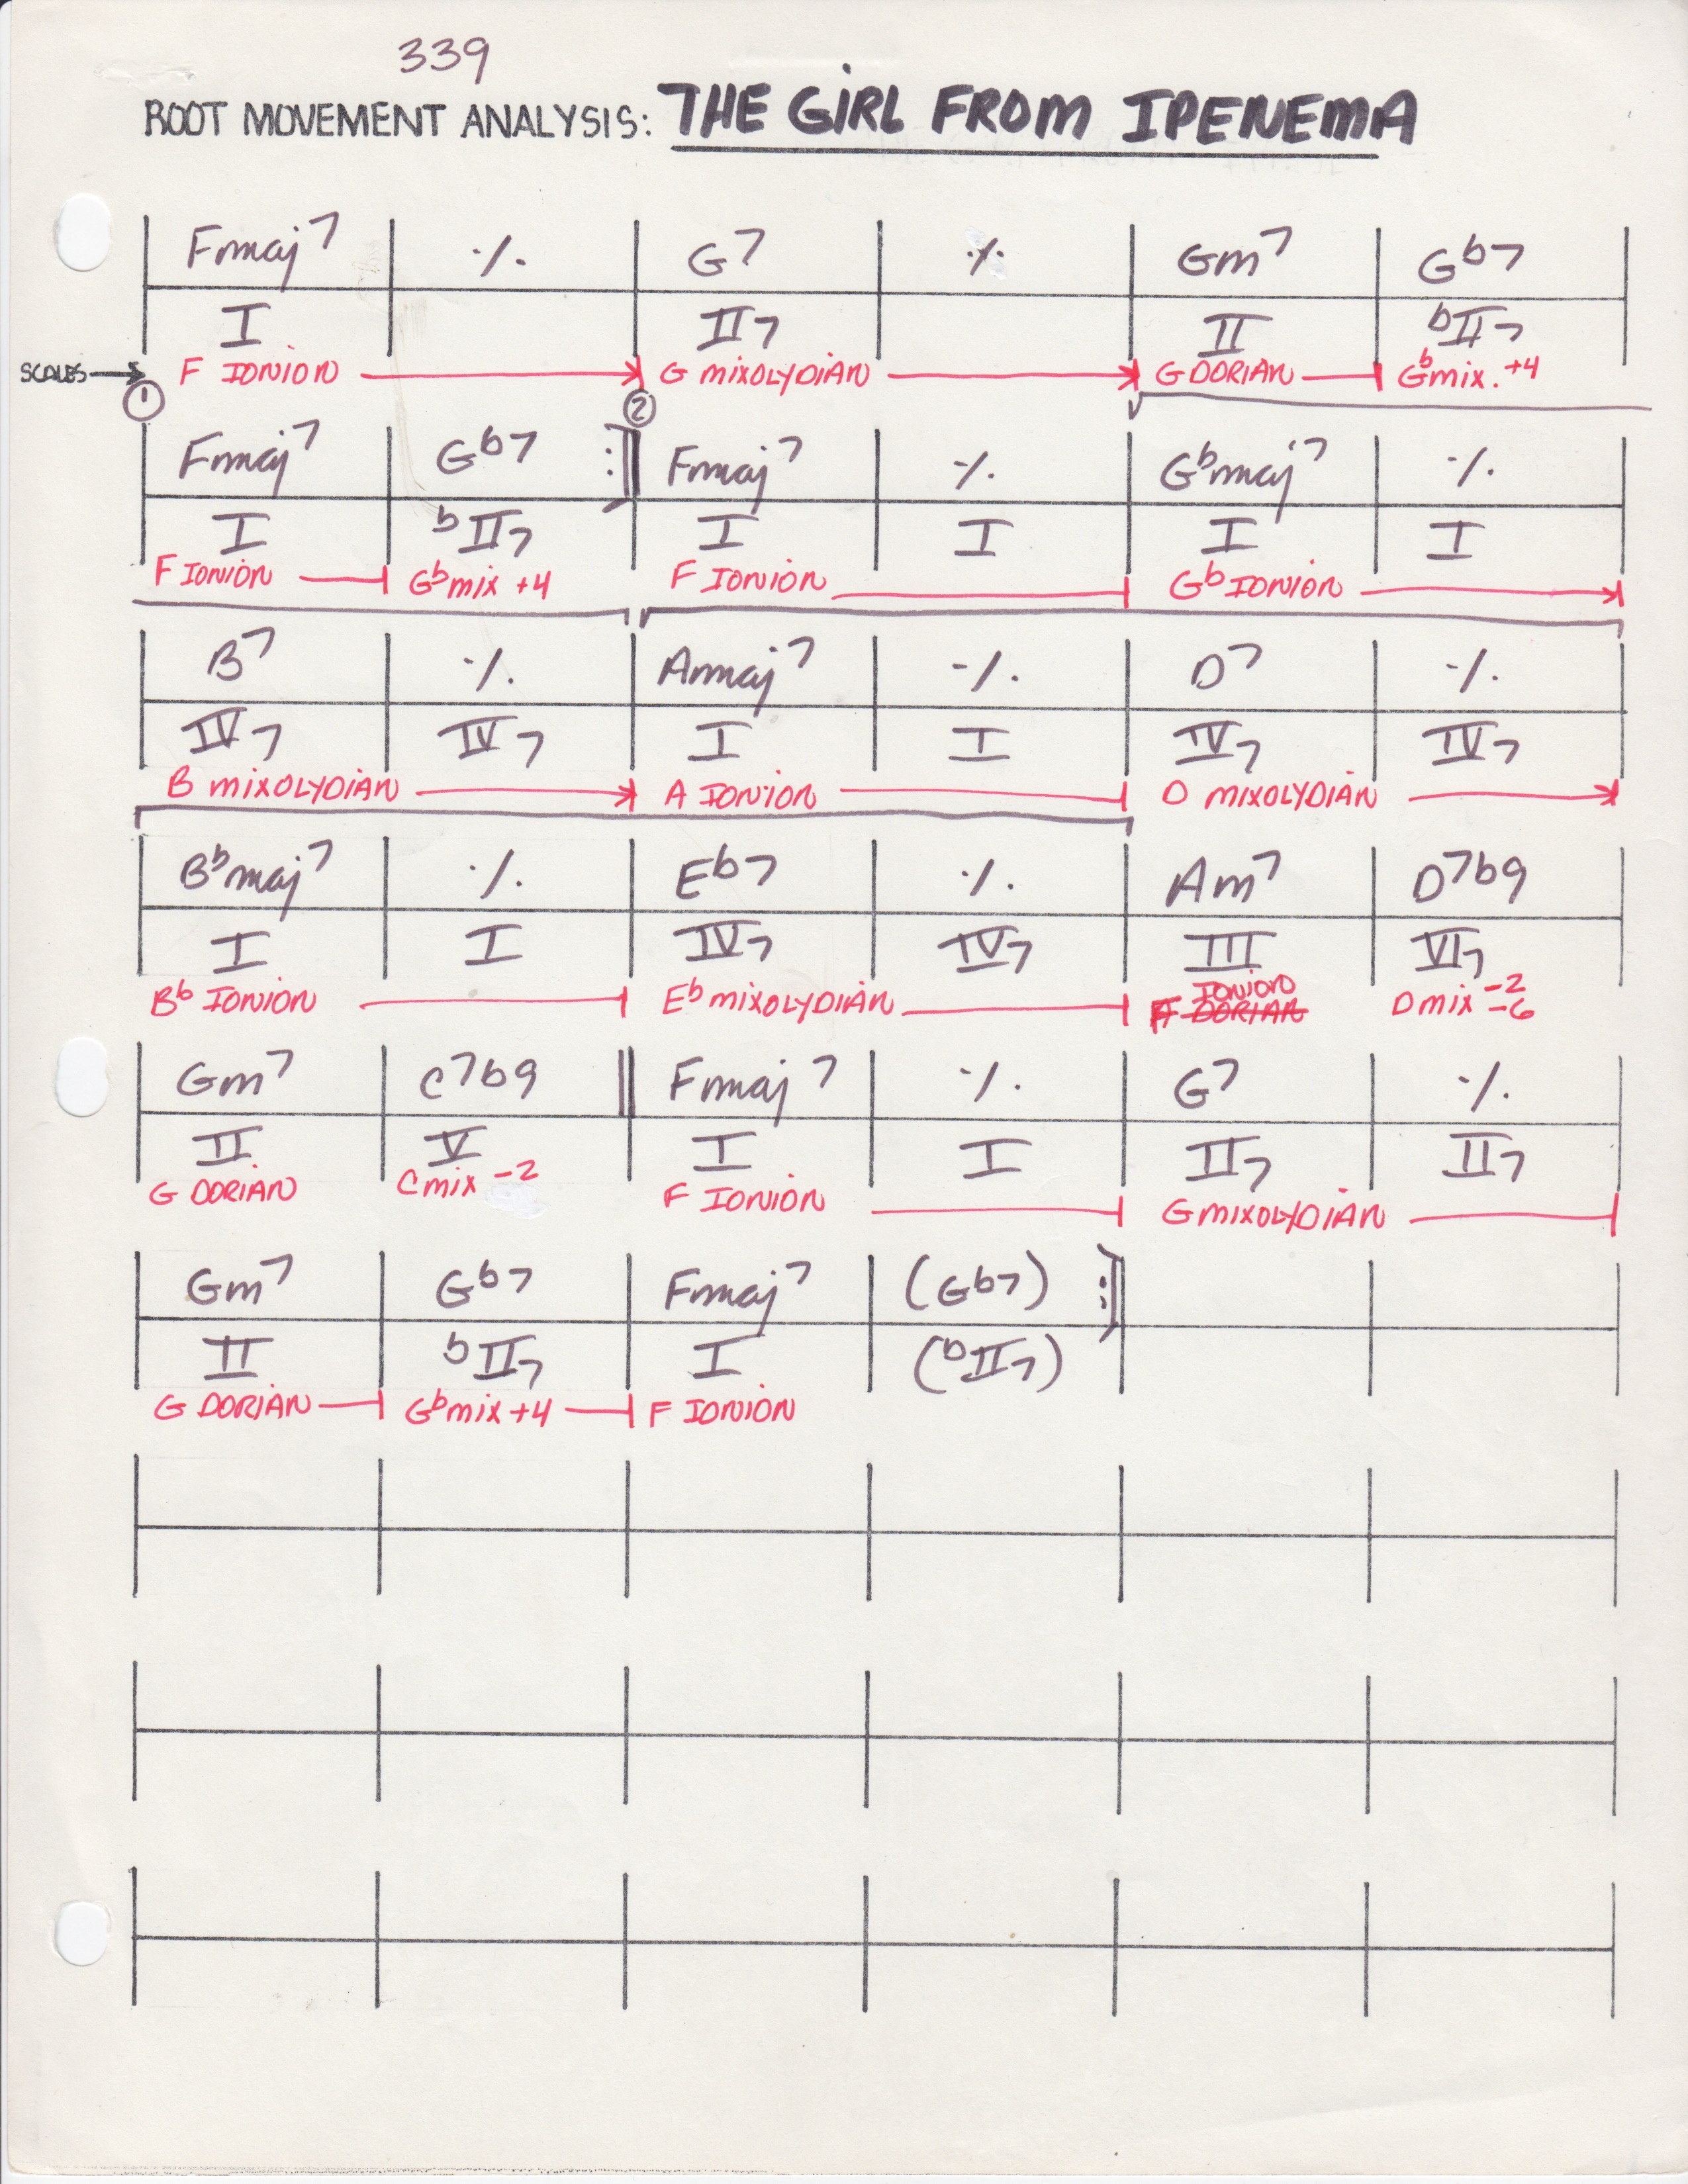 339
ROOT MOVEMENT ANALYSIS: THE GIRL FROM IPENEMA
Fmaj7 ٪ G7 ٪ Gm7 Gb7
I II7 II bII7
SCALES → F IONION G MIXOLYDIAN G DORIAN Gbmix. +4
① ②
Fmaj7 Gb7 :|| Fmaj7 ٪ Gbmaj7 ٪
I bII7 I I I I
F IONION Gbmix +4 F IONION Gb IONION
B7 ٪ Amaj7 ٪ D7 ٪
IV7 IV7 I I IV7 IV7
B MIXOLYDIAN A IONION D MIXOLYDIAN
Bbmaj7 ٪ Eb7 ٪ Am7 D7b9
I I IV7 IV7 III VI7
Bb IONION Eb MIXOLYDIAN IONION DORIAN D mix -2 -6
Gm7 C7b9 Fmaj7 ٪ G7 ٪
II V I I II7 II7
G DORIAN C mix -2 F IONION G MIXOLYDIAN
Gm7 Gb7 Fmaj7 (Gb7) :||
II bII7 I (bII7)
G DORIAN Gbmix +4 F IONION